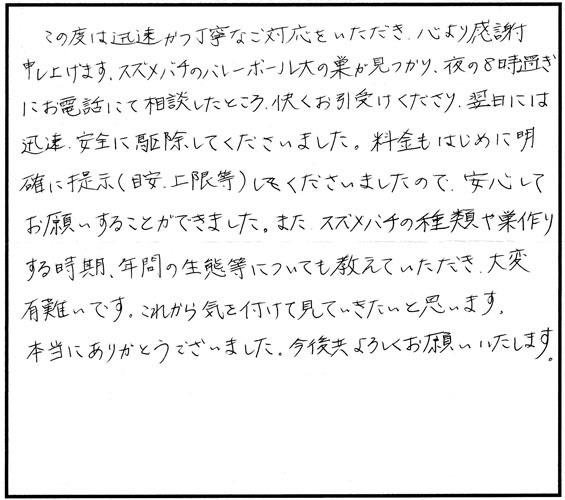 この度は迅速かつ丁寧なご対応をいただき、心より感謝
申し上げます。スズメバチのバレーボール大の巣が見つかり、夜の8時過ぎ
にお電話にて相談したところ、快くお引受けくださり、翌日には
迅速、安全に駆除してくださいました。料金もはじめに明
確に提示(目安、上限等)してくださいましたので、安心して
お願いすることができました。また、スズメバチの種類や巣作り
する時期、年間の生態等についても教えていただき、大変
有難いです。これから気を付けて見ていきたいと思います。
本当にありがとうございました。今後共よろしくお願いいたします。